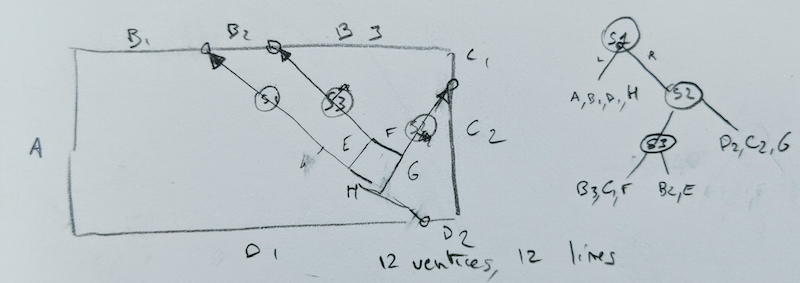 B1 B2 B3
C1
S1 S3 S2 C2
A
E F
G
H
D1 D2
12 vertices, 12 lines
S1
L R
A, B1, D1, H S2
S3 D2, C2, G
B3, C1, F B2, E